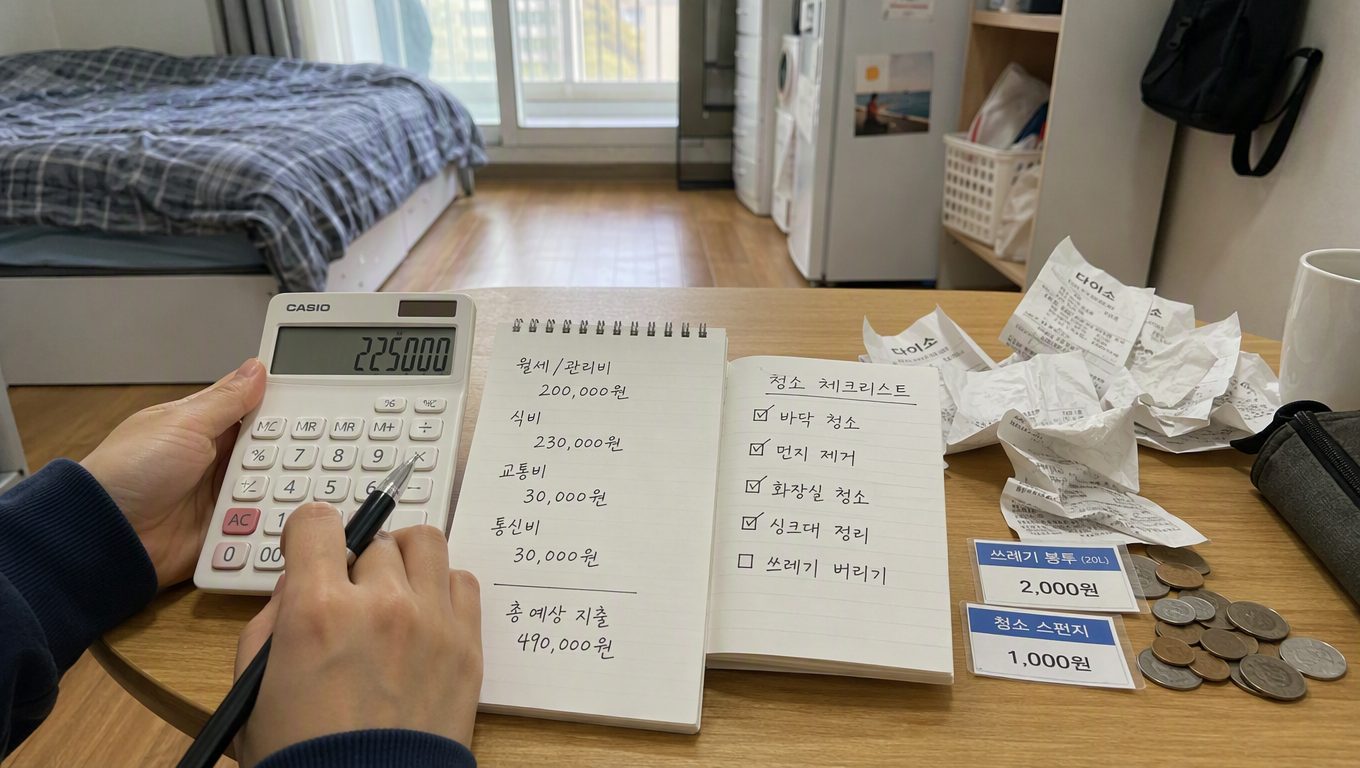 CASIO
225000
MC
MR
MR
M+
÷
%
7
8
9
×
4
5
6
−
AC
1
0
00
월세/관리비
200,000원
식비
230,000원
교통비
30,000원
통신비
30,000원
총 예상 지출
490,000원
청소 체크리스트
☑ 바닥 청소
☑ 먼지 제거
☑ 화장실 청소
☑ 싱크대 정리
☐ 쓰레기 버리기
다이소
다이소
쓰레기 봉투 (20L)
2,000원
청소 스펀지
1,000원